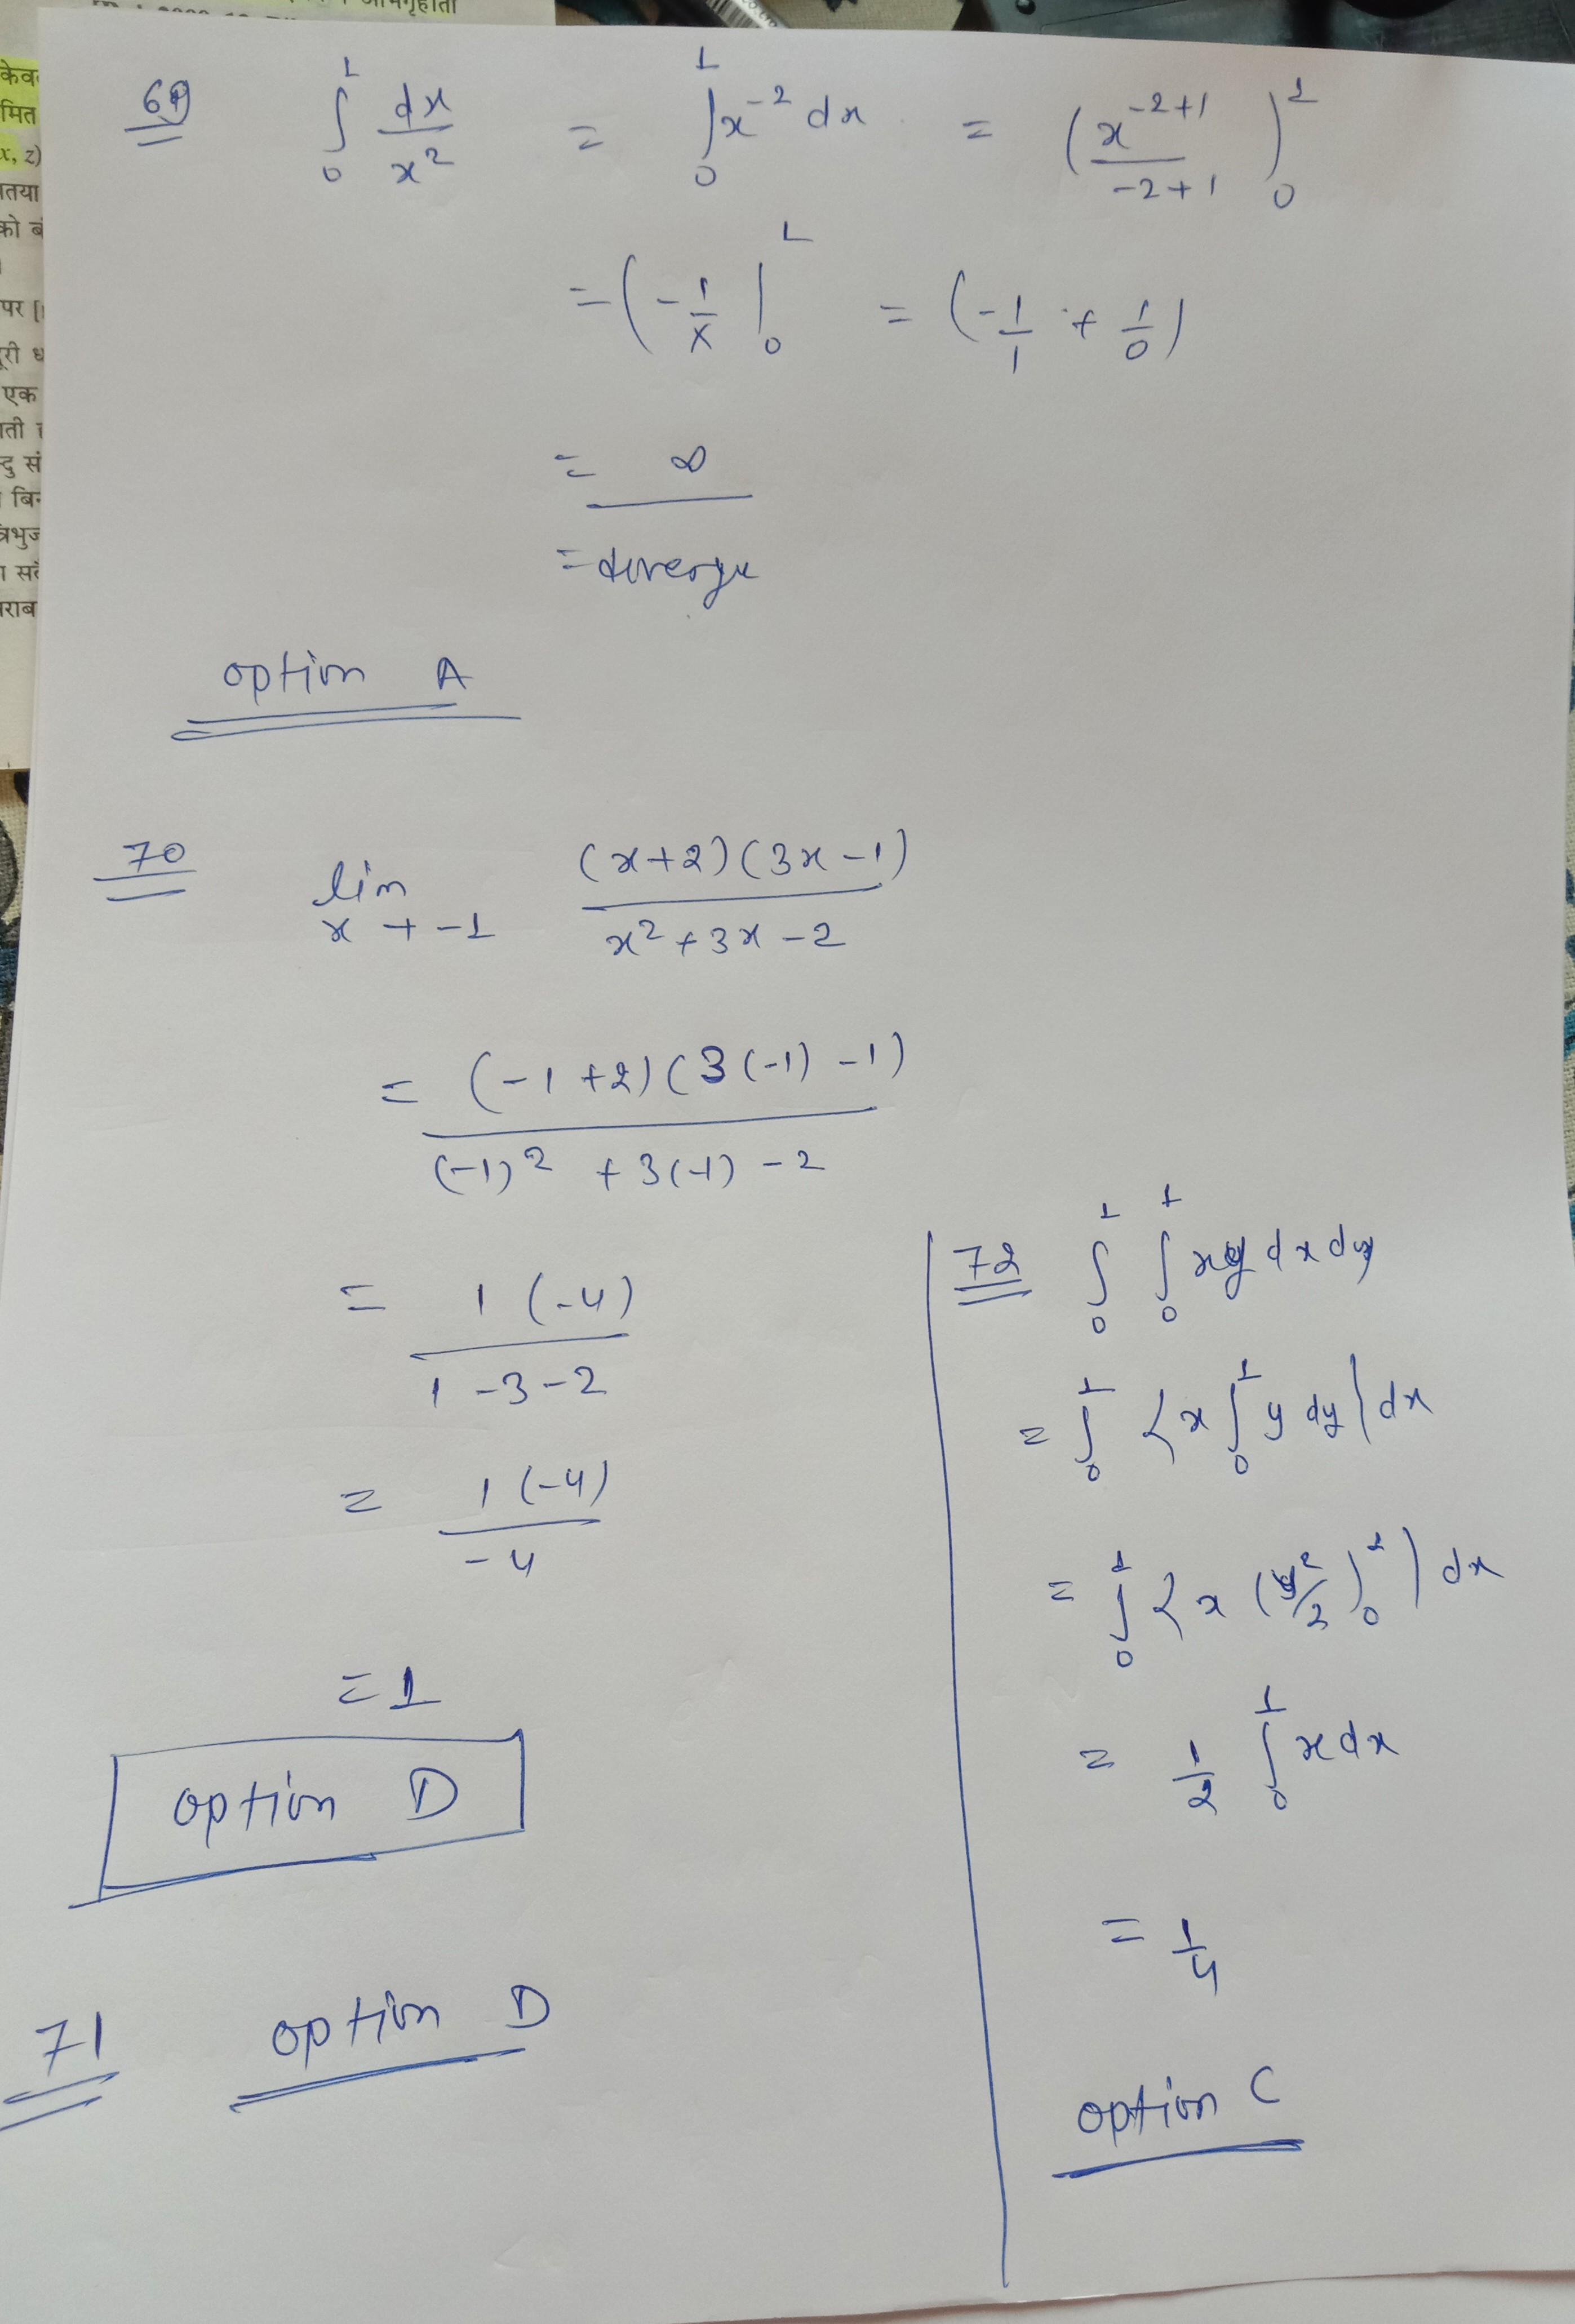 अभिगृहीता
केव
मित
x, z)
तया
को बं
पर [
दूरी ध
एक
ाती ह
दु सं
बिन
त्रिभुज
राब
69 ∫₀¹ dx/x² = ∫₀¹ x⁻² dx = (x⁻²⁺¹/-2+1)₀¹
= (-1/x|₀¹ = (-1/1 + 1/0)
= ∞
= diverge
option A
70 lim x→-1 (x+2)(3x-1)/x²+3x-2
= (-1+2)(3(-1)-1)/(-1)²+3(-1)-2
= 1(-4)/1-3-2
= 1(-4)/-4
= 1
option D
71 option D
72 ∫₀¹ ∫₀¹ xy dx dy
= ∫₀¹ {x ∫₀¹ y dy| dx
= ∫₀¹ {x (y²/2)₀¹) dx
= 1/2 ∫₀¹ x dx
= 1/4
option C